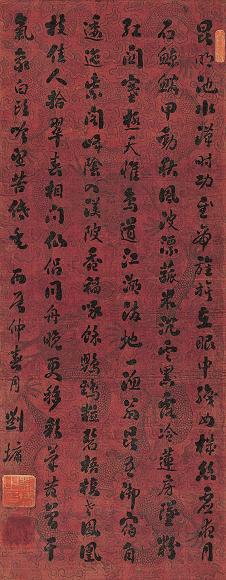 昆明池水漢時功武帝旌旗在眼中織女機絲虛夜月
石鯨鱗甲動秋風波漂菰米沉雲黑露冷蓮房墜粉
紅關塞極天惟鳥道江湖滿地一漁翁昆吾御宿自
逶迤紫閣峰陰入渼陂香稻啄餘鸚鵡粒碧梧棲老鳳凰
枝佳人拾翠春相問仙侶同舟晚更移彩筆昔曾干
氣象白頭吟望苦低垂 丙辰仲春月 劉墉